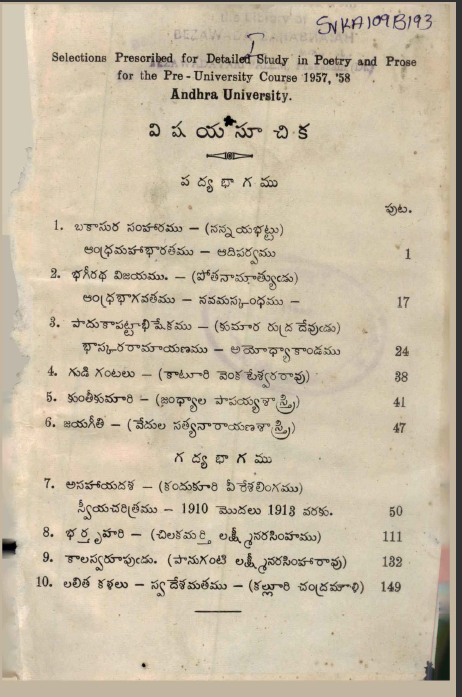 SVKA109B193
Selections Prescribed for Detailed Study in Poetry and Prose
for the Pre-University Course 1957, '58
Andhra University.
విషయసూచిక
పద్యభాగము
పుట.
1. బకాసుర సంహారము — (నన్నయభట్టు)
ఆంధ్రమహాభారతము — ఆదిపర్వము 1
2. భగీరథ విజయము. — (పోతనామాత్యుఁడు)
ఆంధ్రభాగవతము — నవమస్కంధము — 17
3. పాదుకాపట్టాభిషేకము — (కుమార రుద్రదేవుఁడు)
భాస్కరరామాయణము — అయోధ్యాకాండము 24
4. గుడి గంటలు — (కాటూరి వెంకటేశ్వరరావు) 38
5. కుంతీకుమారి — (జంధ్యాల పాపయ్యశాస్త్రి) 41
6. జయగీతి — (వేదుల సత్యనారాయణశాస్త్రి) 47
గద్యభాగము
7. అసహాయదశ — (కందుకూరి వీరేశలింగము)
స్వీయచరిత్రము — 1910 మొదలు 1913 వరకు. 50
8. భర్తృహరి — (చిలకమర్తి లక్ష్మీనరసింహము) 111
9. కాలస్వరూపుఁడు. (పానుగంటి లక్ష్మీనరసింహారావు) 132
10. లలిత కళలు — స్వదేశమతము — (కల్లూరి చంద్రమౌళి) 149